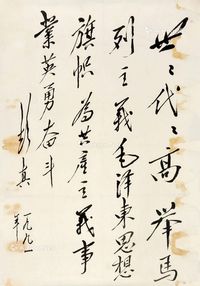 世々代々高举马
列主義毛泽东思想
旗帜为共産主義事
業英勇奋斗
彭真
一九九一年